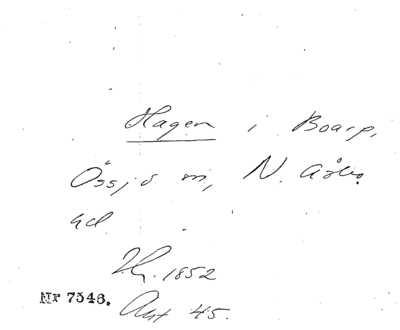 Hagen i Boarp,
Össjö sn, N. Åsbo
hd.
Hg. 1852
Ant 45.
Nr 7546.